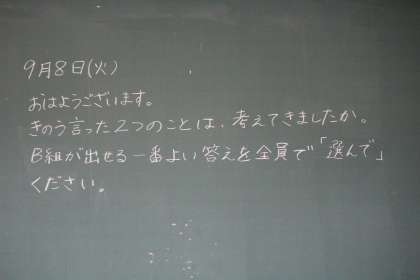 9月8日(火)
おはようございます。
きのう言った2つのことは、考えてきましたか。
B組が出せる一番よい答えを全員で「選んで」
ください。